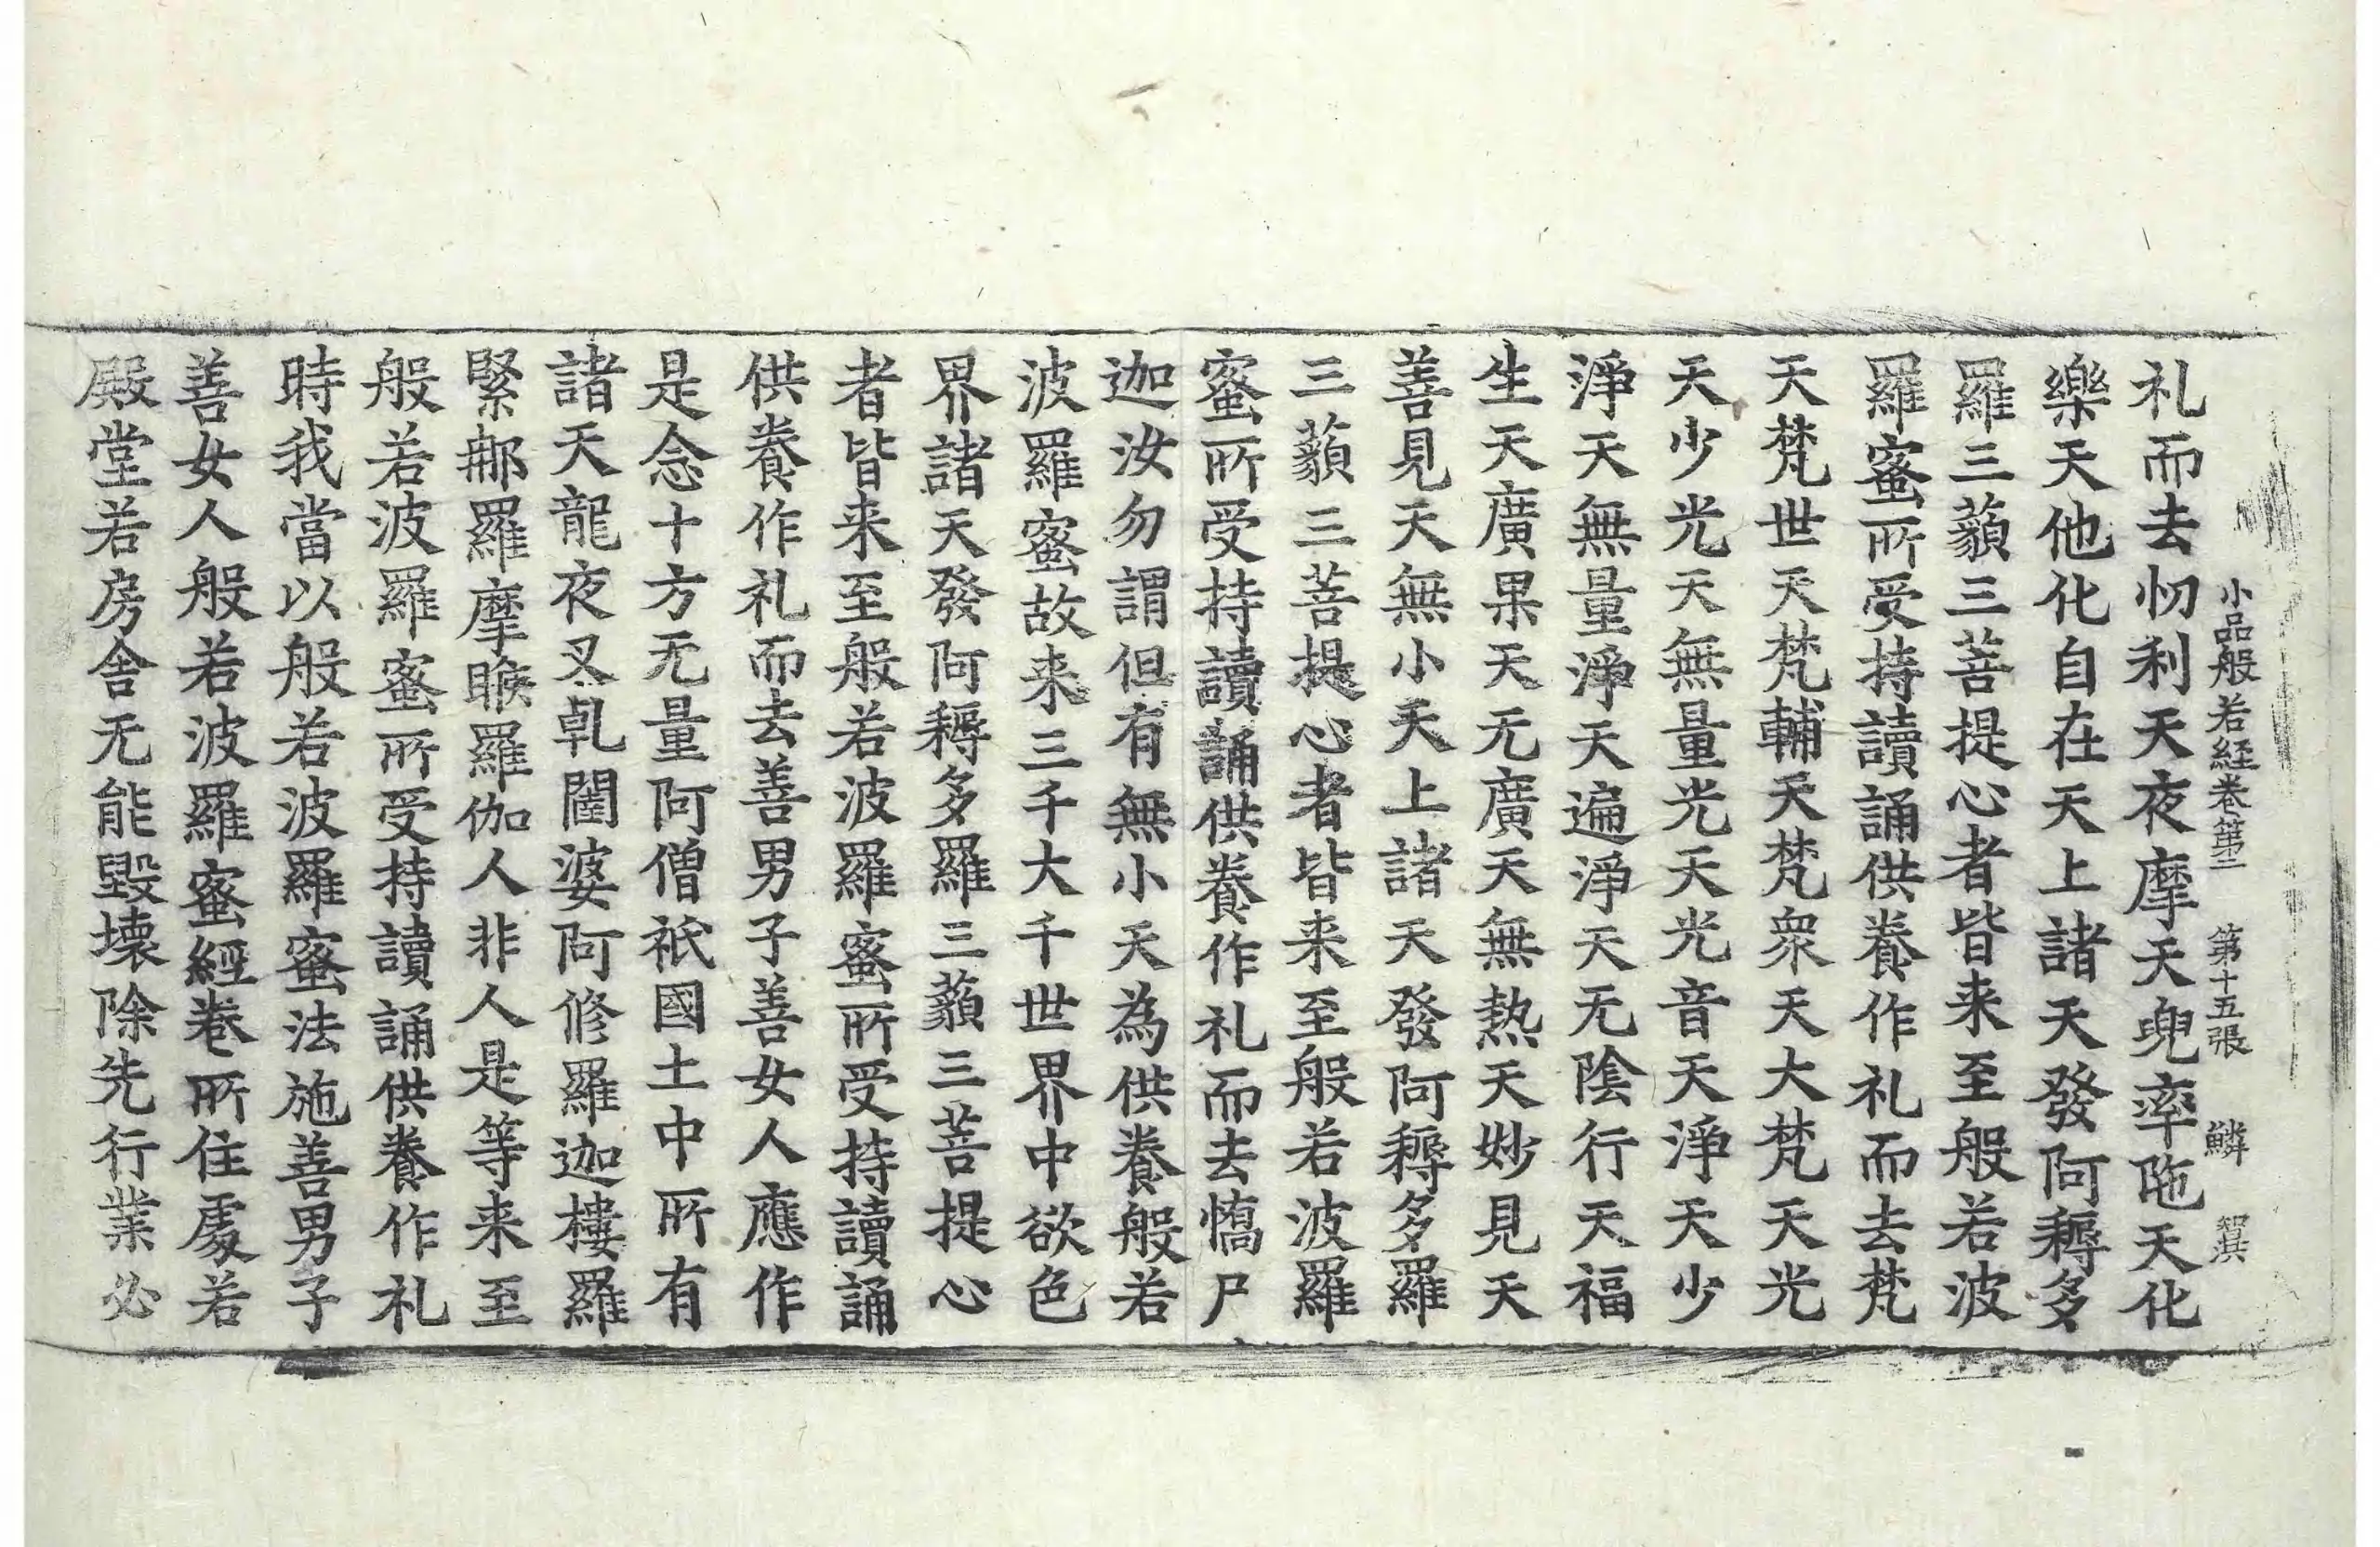 小品般若経卷第二 第十五張 鱗 智淇
礼而去忉利天夜摩天兜率陁天化
樂天他化自在天上諸天發阿耨多
羅三藐三菩提心者皆来至般若波
羅蜜所受持讀誦供養作礼而去梵
天梵世天梵輔天梵衆天大梵天光
天少光天無量光天光音天淨天少
淨天無量淨天遍淨天无陰行天福
生天廣果天无廣天無熱天妙見天
善見天無小天上諸天發阿耨多羅
三藐三菩提心者皆来至般若波羅
蜜所受持讀誦供養作礼而去憍尸
迦汝勿謂但有無小天為供養般若
波羅蜜故来三千大千世界中欲色
界諸天發阿耨多羅三藐三菩提心
者皆来至般若波羅蜜所受持讀誦
供養作礼而去善男子善女人應作
是念十方无量阿僧祇國土中所有
諸天龍夜叉乹闥婆阿修羅迦樓羅
緊那羅摩睺羅伽人非人是等来至
般若波羅蜜所受持讀誦供養作礼
時我當以般若波羅蜜法施善男子
善女人般若波羅蜜經卷所住處若
殿堂若房舎无能毀壞除先行業必